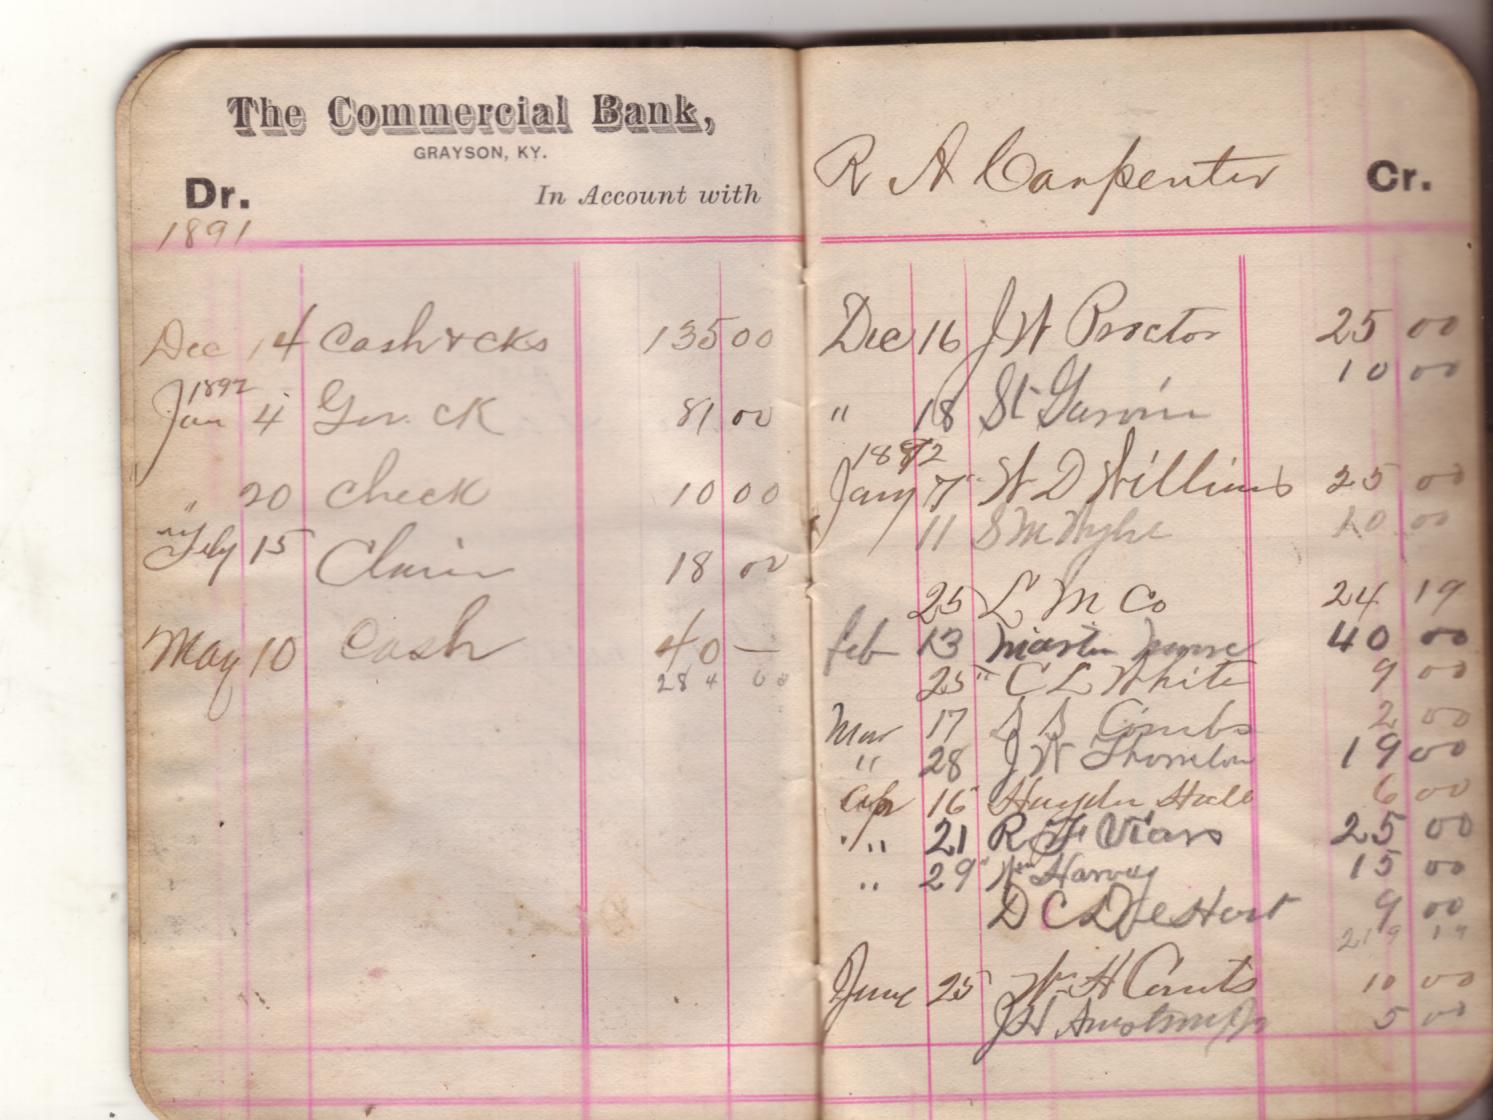 The Commercial Bank,
GRAYSON, KY.
Dr. In Account with
1891
Dec 14 Cash & cks 135 00
1892
Jan 4 Gov. ck 81 00
" 20 Check 10 00
Feby 15 Claim 18 00
May 10 Cash 40 —
284 00
R A Carpenter Cr.
Dec 16 J W Proctor 25 00
10 00
" 18 St Garvin
1892
Jany 7 W D Williams 25 00
11 S M 10 00
25 L M Co 24 19
feb 13 Martin 40 00
25 " C L White 9 00
Mar 17 Combs 2 00
" 28 J W Thornton 19 00
Apr 16 Hayden Hall 6 00
" 21 R F Viars 25 00
" 29 Wm Harvey 15 00
D C 9 00
219 19
June 25 W H Counts 10 00
J H Armstrong Jr 5 00